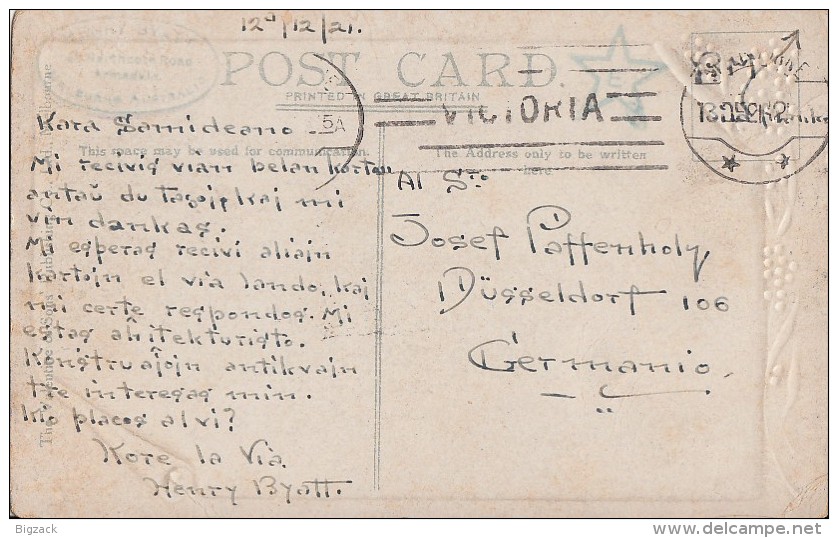 12ª/12/21.
POST CARD.
PRINTED IN GREAT BRITAIN
VICTORIA
5A
This space may be used for communication.
The Address only to be written
here
Kara Samideano –
Mi recivis vian belan kartan
antaŭ du tagoj, kaj mi
vin dankas.
Mi esperas recivi aliajn
kartojn el via lando, kaj
mi certe respondos. Mi
estas arĥitekturisto.
Konstruaĵojn antikvajn
tre interesas min.
Kio placas al vi?
Kore la Via
Henry Byatt.
Al Sro
Josef Paffenholz
Düsseldorf 106
Germanio.
Bigzack
delcampe.net